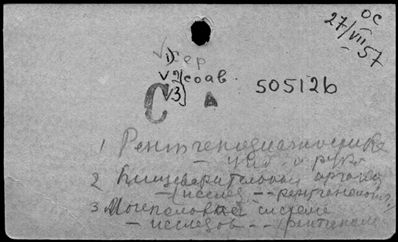 ОС
27/VII 57
V 1) сер
V 2) соав.
V 3)
С
А
505126
1 Рентгенодиагностика
2 Пищеварительные органы
- исслед. -- рентгенолог.
3 Мочеполовая система
- исследов -- рентгенол